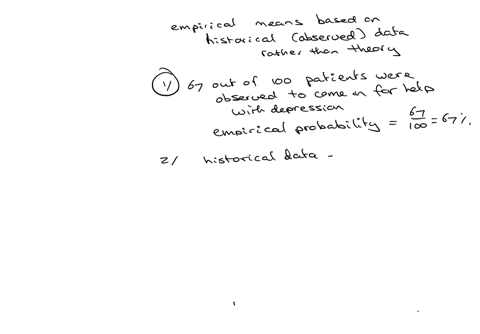 empirical means based on
historical (observed) data
rather than theory
1/ 67 out of 100 patients were
observed to come in for help
with depression
empirical probability = 67/100 = 67%.
2/ historical data -